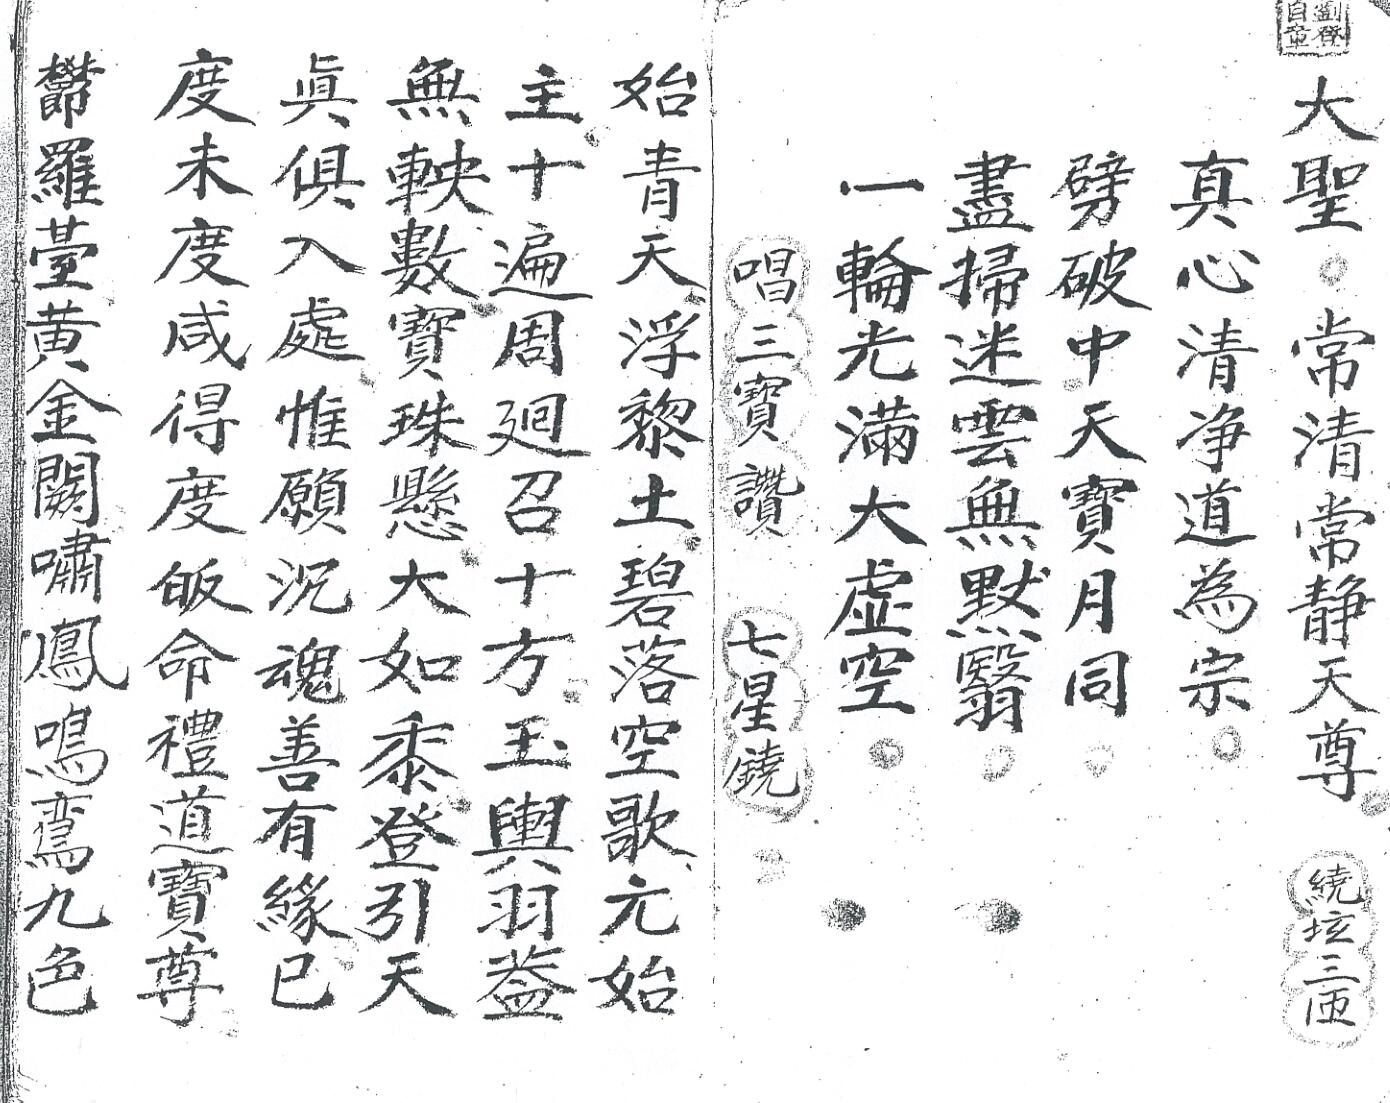 大聖。常清常静天尊 繞坛三匝
真心清净道為宗。
劈破中天寶月同。
盡掃迷雲無黙翳。
一輪光滿大虛空。
唱三寶讚 七星鐃
始青天浮黎土碧落空歌元始
主十遍周廻召十方玉輿羽蓋
無鞅數寶珠懸大如黍登引天
眞俱入處惟願沉魂善有緣已
度未度咸得度皈命禮道寶尊
欝羅臺黄金闕嘯鳳鳴鸞九色